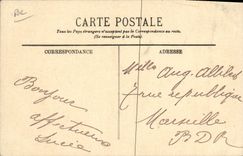 CARTE POSTALE
Tous les Pays étrangers n'acceptent pas la Correspondance au recto.
(Se renseigner à la Poste)
CORRESPONDANCE
ADRESSE
Bonjour
affectueux
Lucie
Mlle Aug.
7 rue république
Marseille
BDR